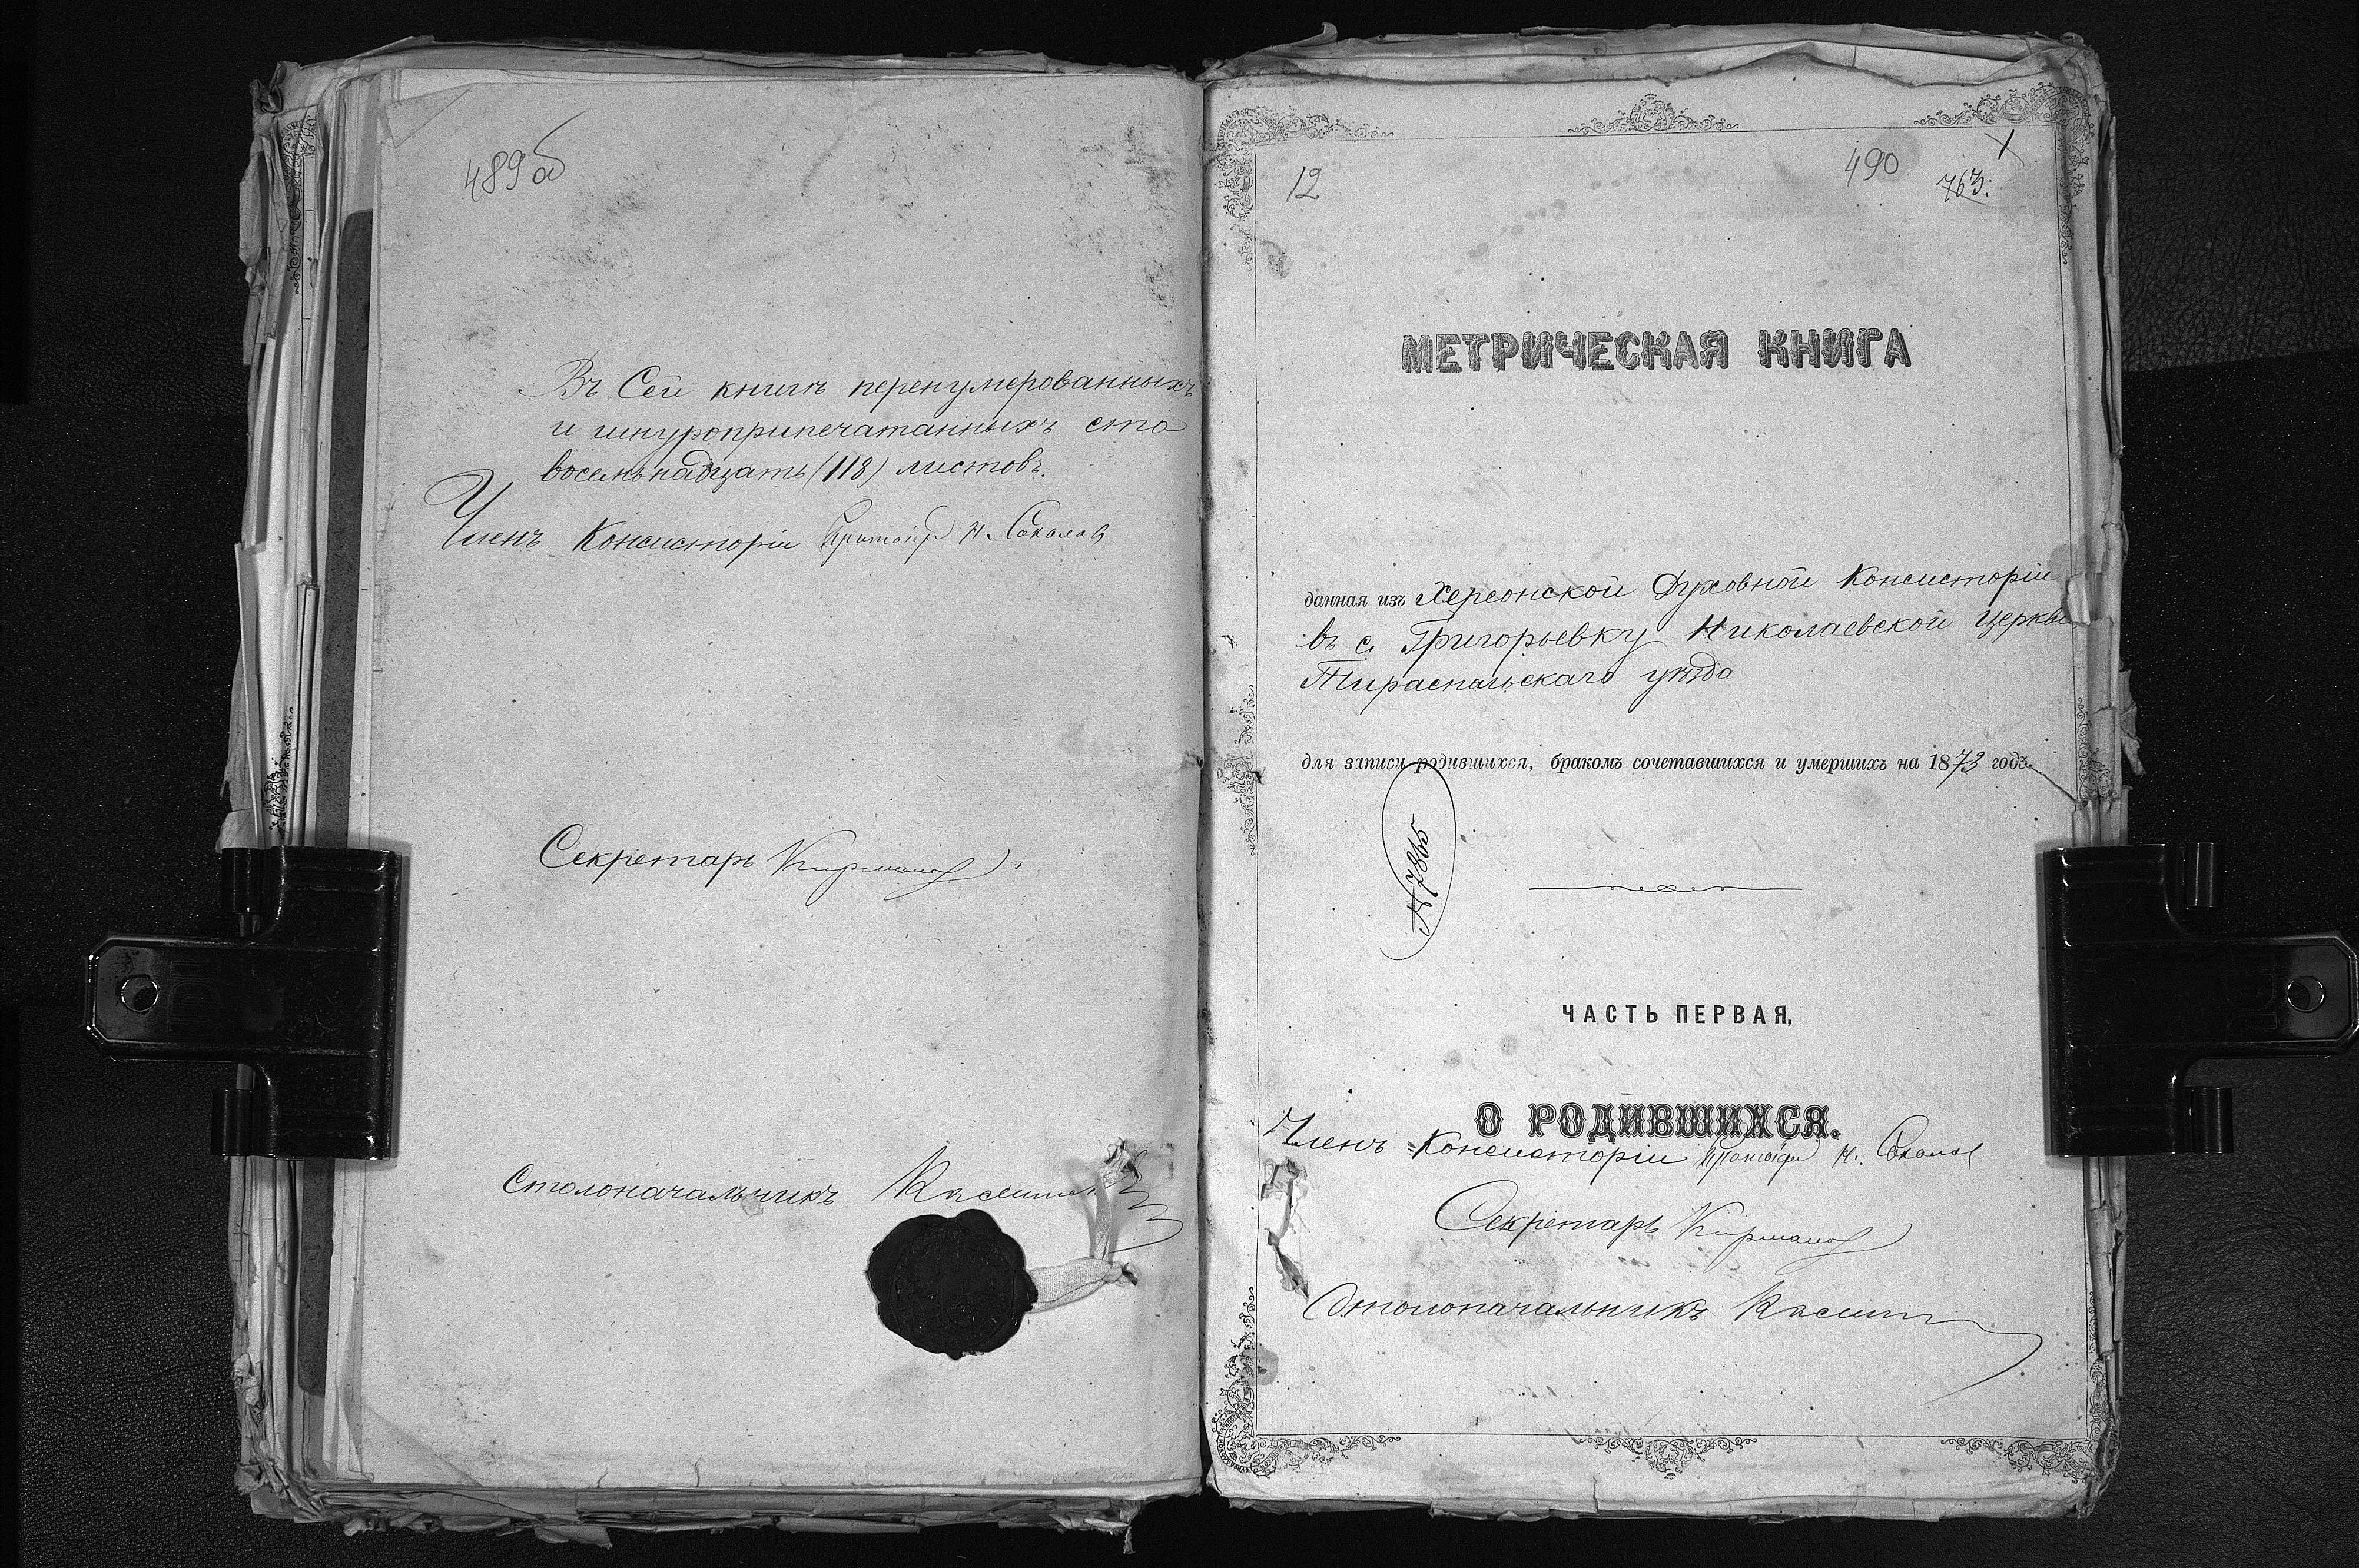 489 об
Въ Сей книгѣ перенумерованныхъ
и шнуроприпечатанныхъ сто
восемьнадцать (118) листовъ.
Членъ Консисторіи Н. Соколовъ
Секретарь
Столоначальникъ
12
490
763.
МЕТРИЧЕСКАЯ КНИГА
данная изъ Херсонской Духовной Консисторіи
въ с. Григорьевку Николаевской церкви
Тираспольскаго уѣзда
для записи родившихся, бракомъ сочетавшихся и умершихъ на 1873 годъ.
№ 7865
ЧАСТЬ ПЕРВАЯ,
О РОДИВШИХСЯ.
Членъ Консисторіи Н. Соколов
Секретарь
Столоначальникъ